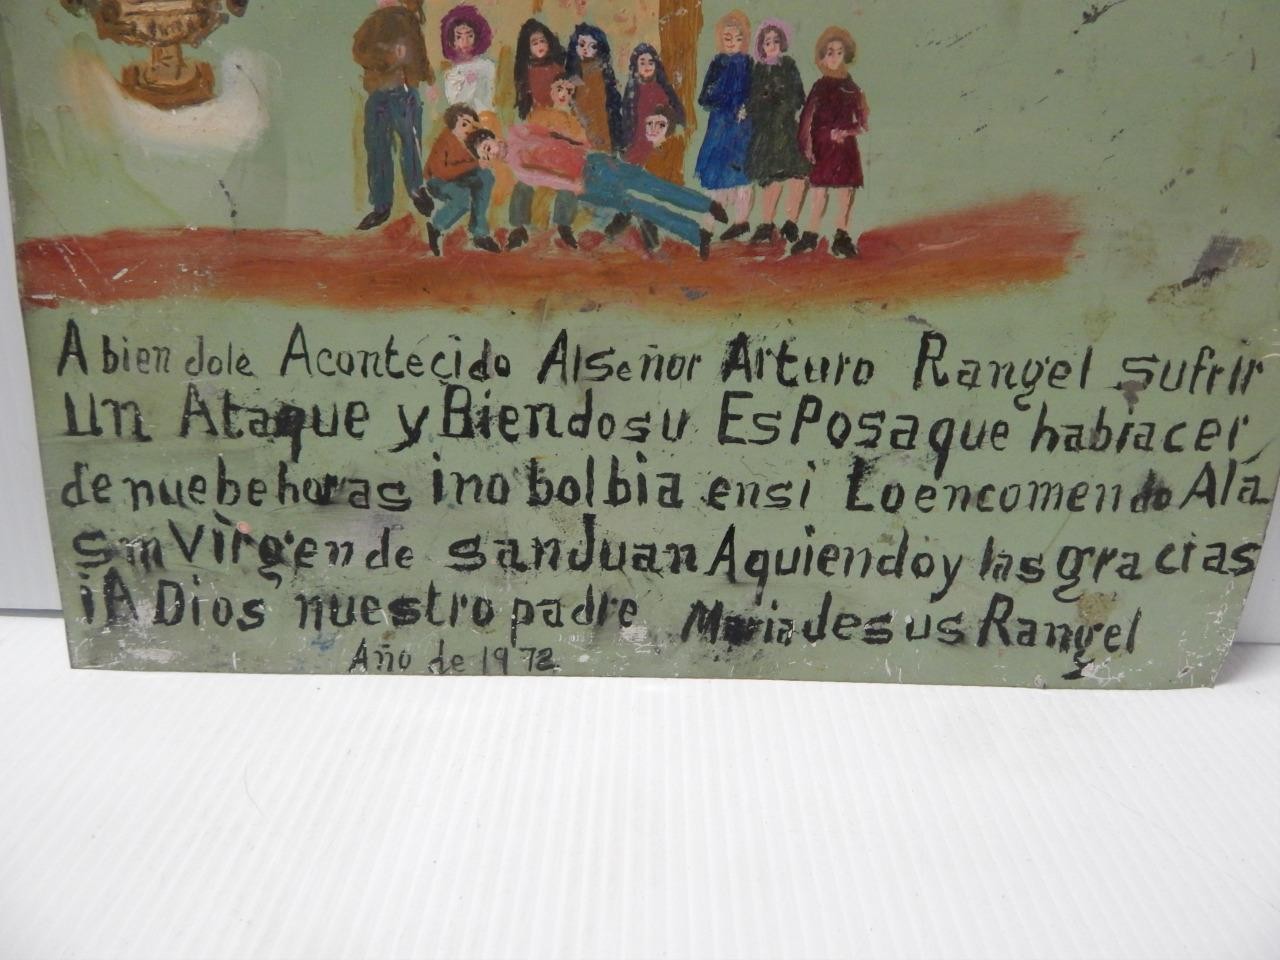 Abiendole Acontecido Alseñor Arturo Rangel sufrir
un Ataque y Biendosu EsPosaque habiacer
de nuebehoras ino bolbia ensi Loencomendo Ala
San Virgende sanJuan Aquiendoy las gracias
iA Dios nuestro padre Mariadesus Rangel
Año de 1972